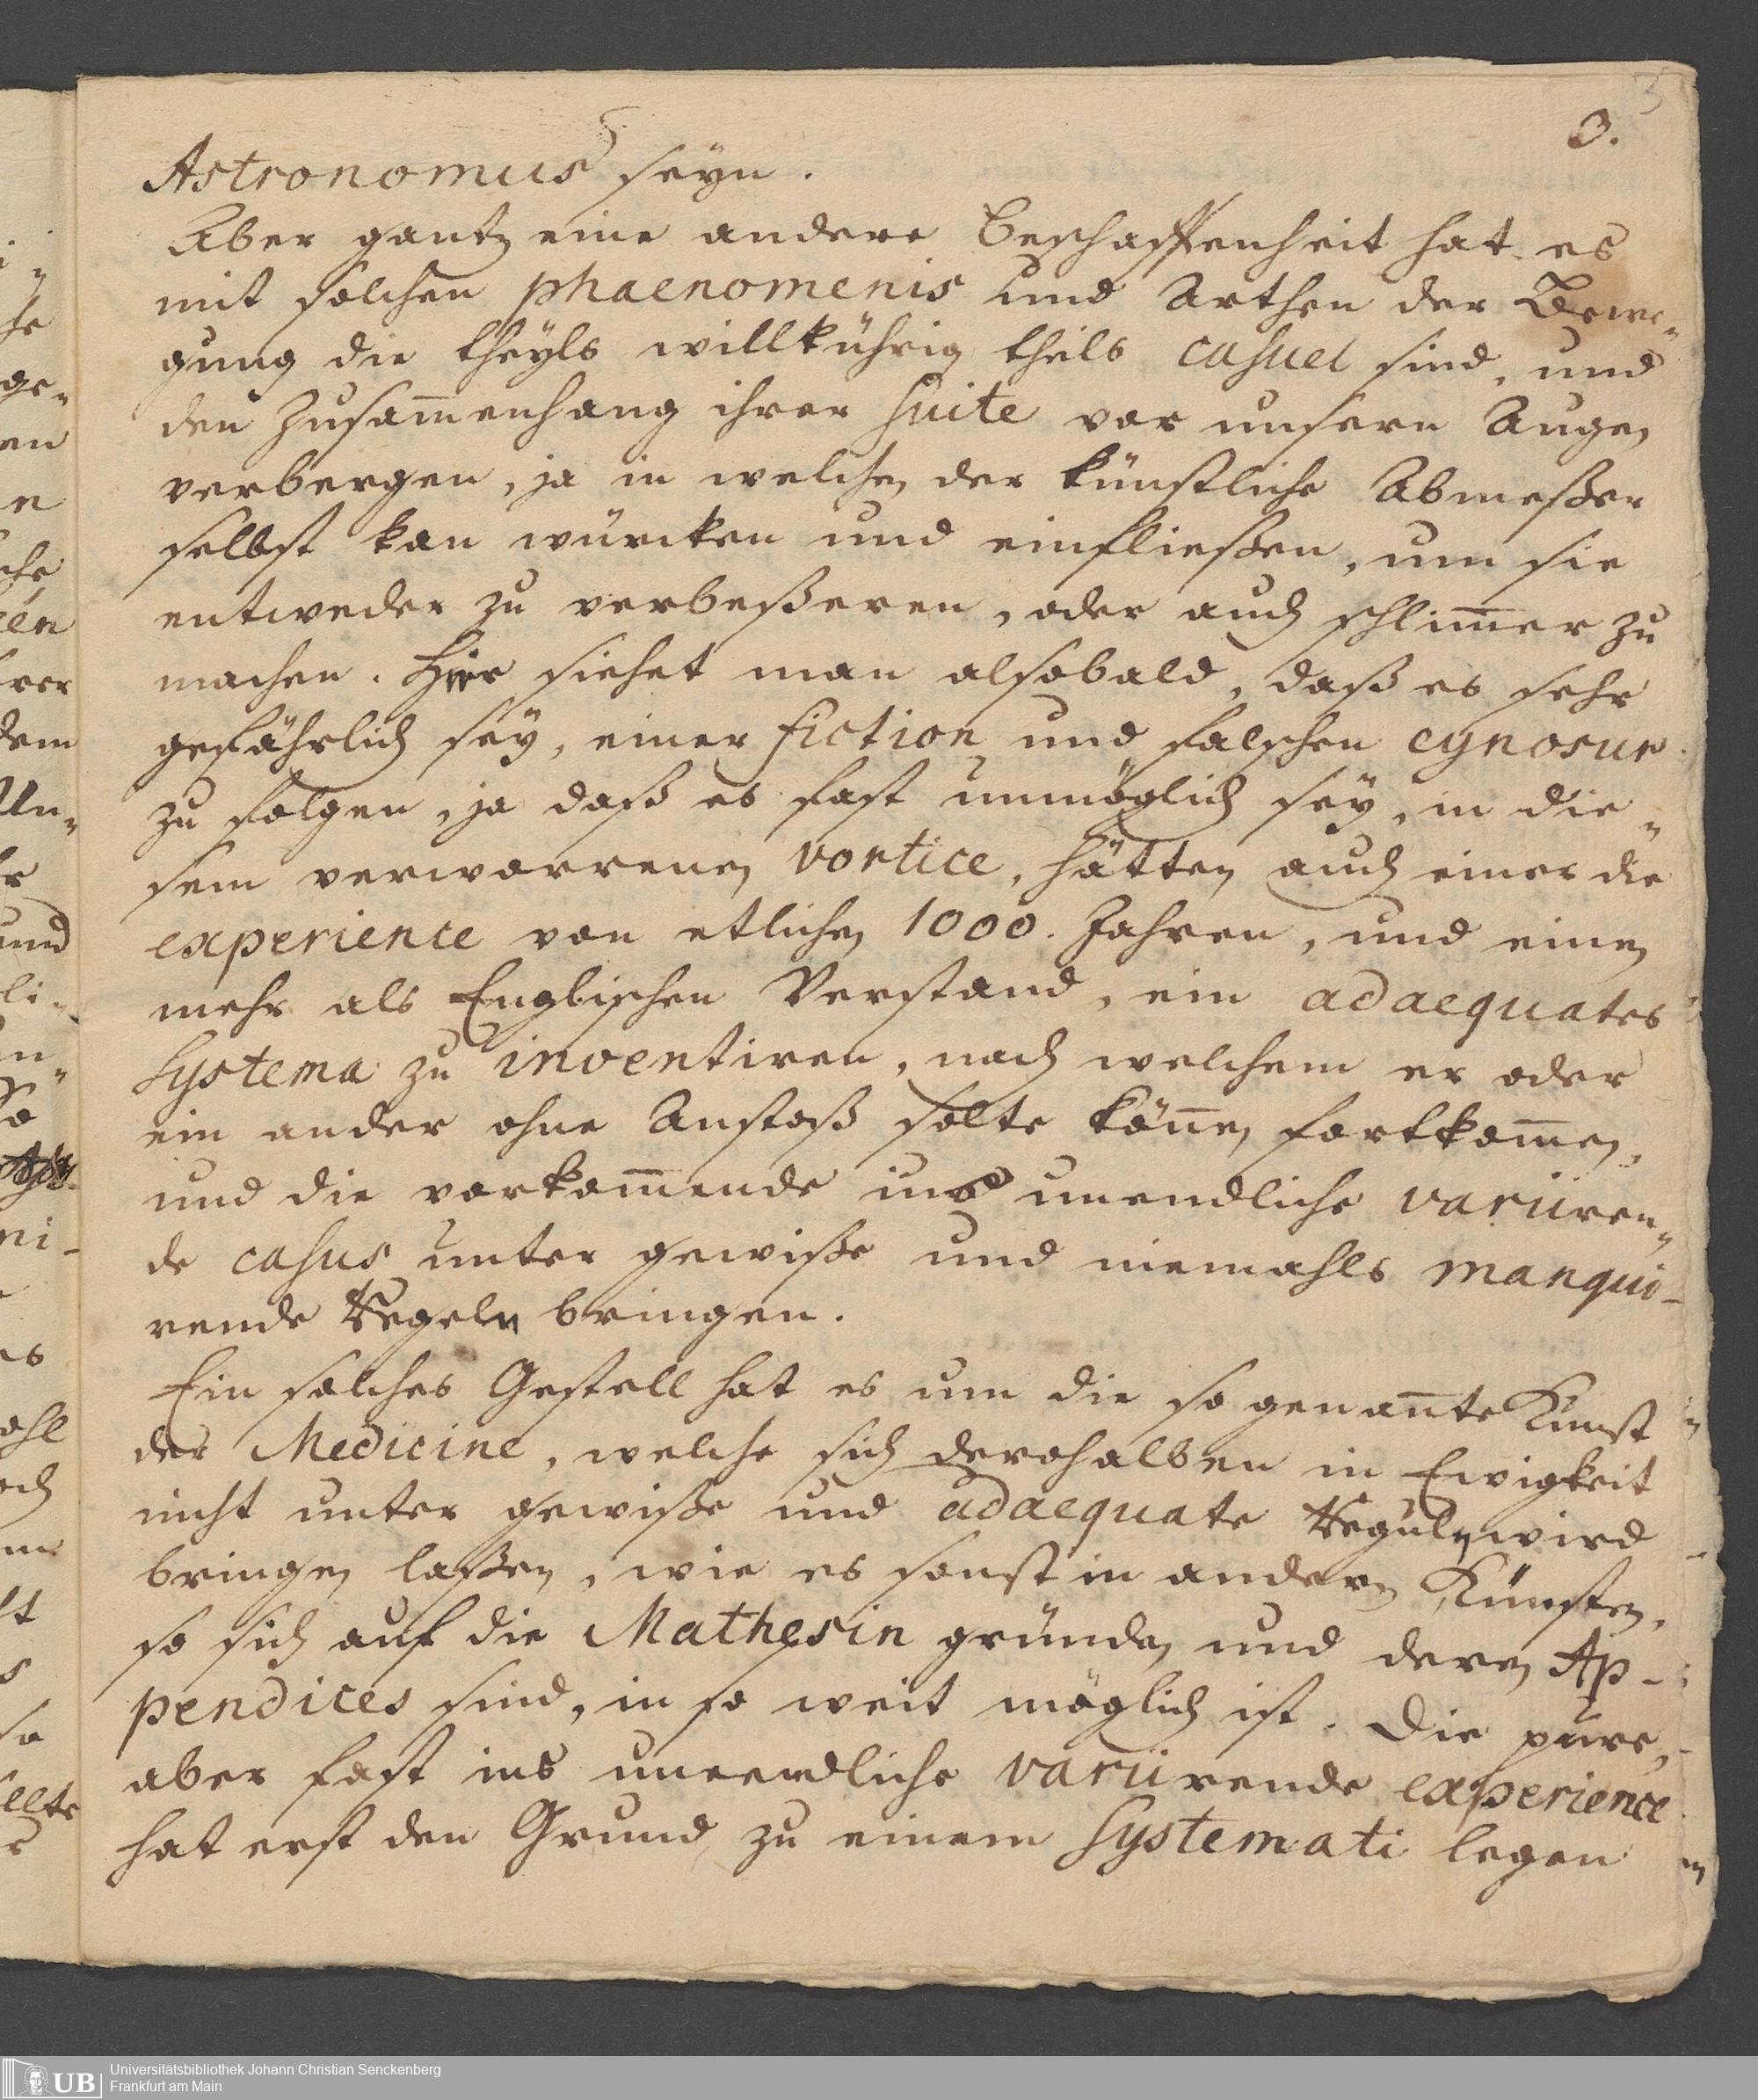 3
3.
Astronomus seyn.
Aber gantz eine andere Beschaffenheit hat es
mit solchen phaenomenis und Arthen der Bewe„
gung die theyls willkührig theils casuel sind, und
den Zusam̅enhang ihrer Suite vor unsern Augen
verbergen, ja in welchen der künstliche Abmeßer
selbst kan würcken und einfließen, um sie
entweder zu verbeßeren, oder auch schlim̅er zu
machen. Hier siehet man alsobald, daß es sehr
gefährlich sey, einer fiction und falschen cynosur
zu folgen, ja daß es fast unmöglich sey, in die„
sem verworrenen vortice, hätten auch einer die
experience von etlichen 1000. Jahren, und einen
mehr als Englischen Verstand, ein adaequates
Systema zu inventiren, nach welchem er oder
ein ander ohne Anstoß solte kön̅en fortkom̅en,
und die vorkom̅ende ins unendliche variiren„
de casus unter gewiße und niemahls manqui-
rende Regeln bringen.
Ein solches Gestell hat es um die so genan̅te Kunst
der Medicine, welche sich derohalben in Ewigkeit
nicht unter gewiße und adaequate Reguln wird
bringen laßen, wie es sonst in andern Künsten,
so sich auf die Mathesin gründen und deren Ap-
pendices sind, in so weit möglich ist. Die pure,
aber fast ins uneendliche variirende experience
hat erst den Grund zu einem Systemati legen
UB
Universitätsbibliothek Johann Christian Senckenberg
Frankfurt am Main